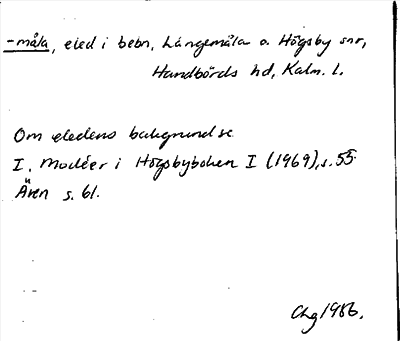 -måla, eled i bebn, Långemåla o. Högsby snr,
Handbörds hd, Kalm. l.
Om eledens bakgrund se
I. Modéer i Högsbyboken I (1969), s. 55.
Även s. 61.
Chg 1986.